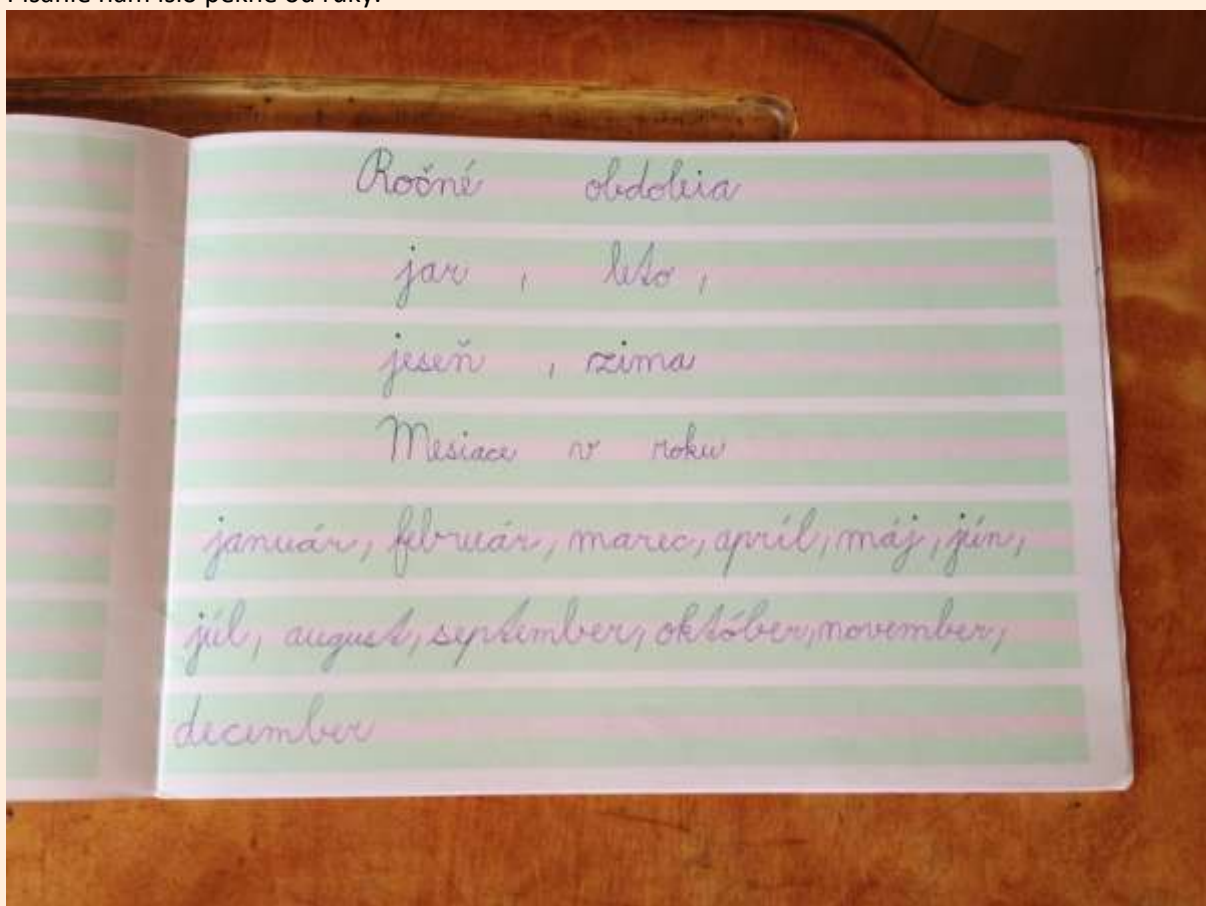 Písanie nám išlo pekne od ruky.
Ročné obdobia
jar , leto ,
jeseň , zima
Mesiace v roku
január, február, marec, apríl, máj, jún,
júl, august, september, október, november,
december